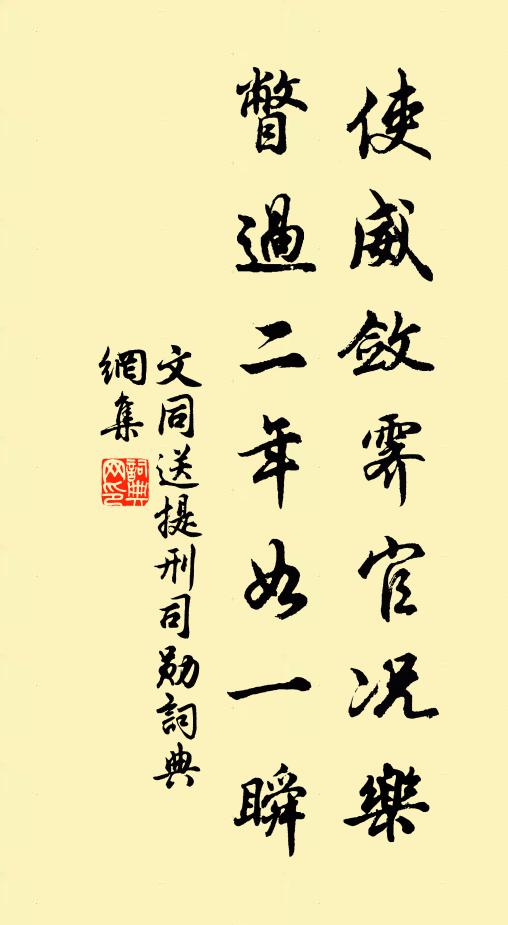 使威斂霽官况樂
瞥過二年如一瞬
文同送提刑司勋詞典
網集
詞典網印